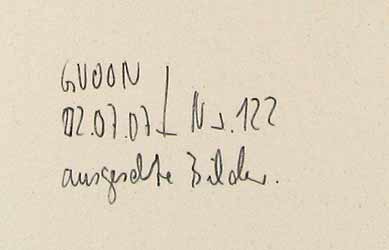 GUDON
02.07.07 Nr. 122
ausgesehte Bilder.